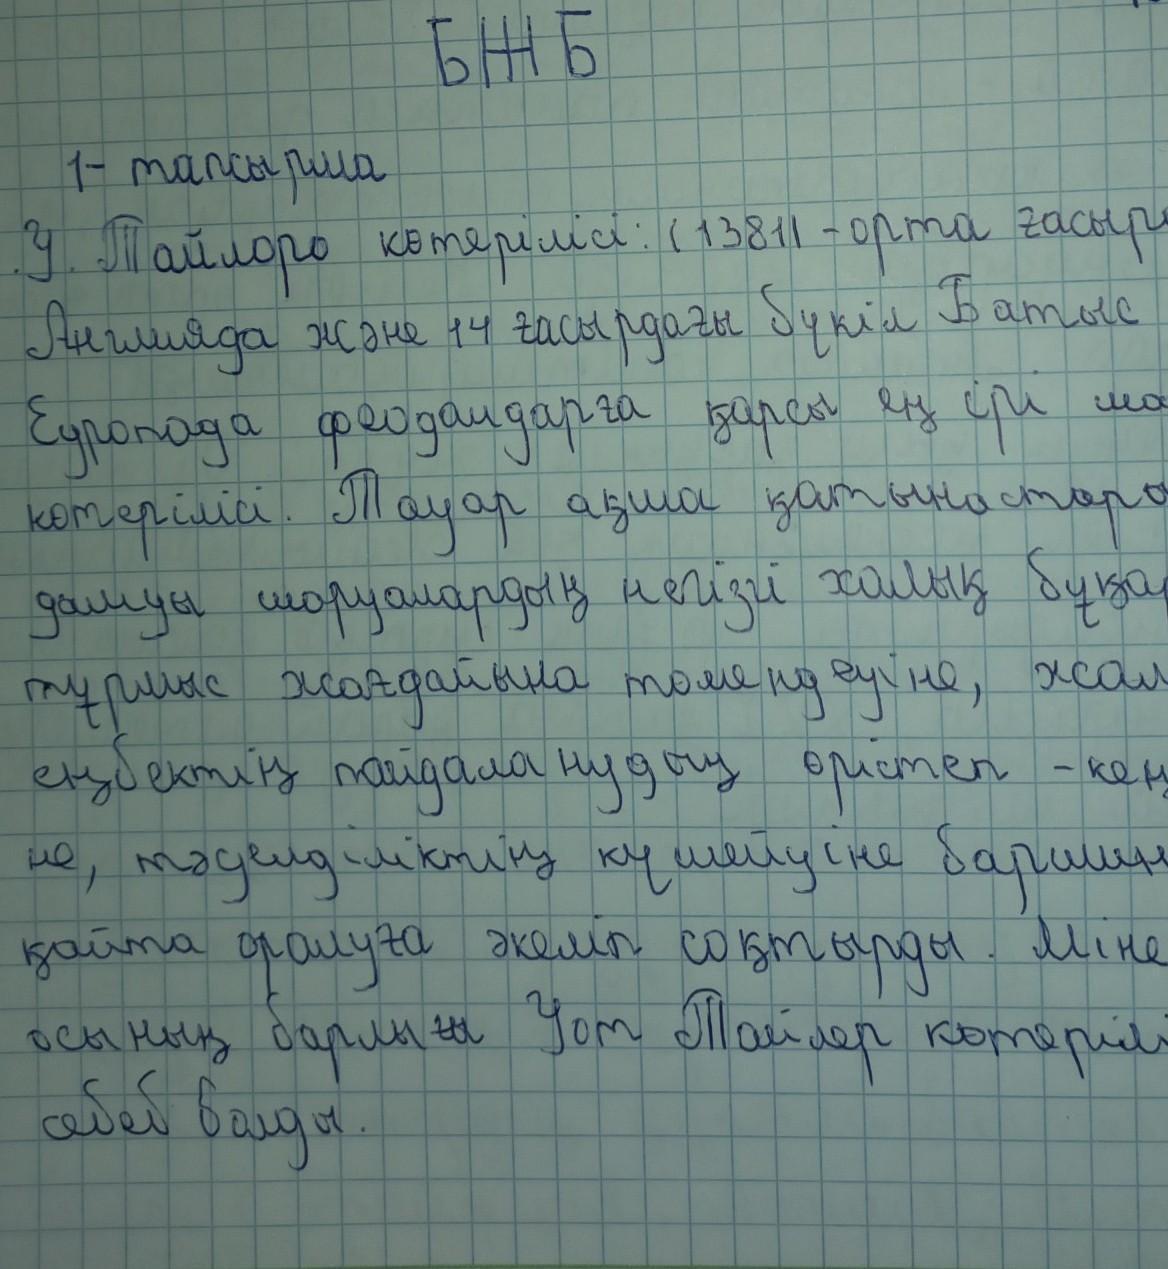 БЖБ
1- тапсырма
У. Тайлоро көтерілісі: (1381) - орта ғасыр
Англияда және 14 ғасырдағы бүкіл Батыс
Еуропада феодалдарға қарсы ең ірі ша
көтерілісі. Тауар ақша қатынастары
дамуы шаруалардың негізі халық бұқа
тұрмыс жағдайына төмендеуіне, жал
еңбектің пайдаланудың өрістеп - кең
не, тәуелділіктің күшейуіне баршин
қайта оралуға әкеліп соқтырды. Міне
осының барлығы Уот Тайлер көтеріл
себеб болды.